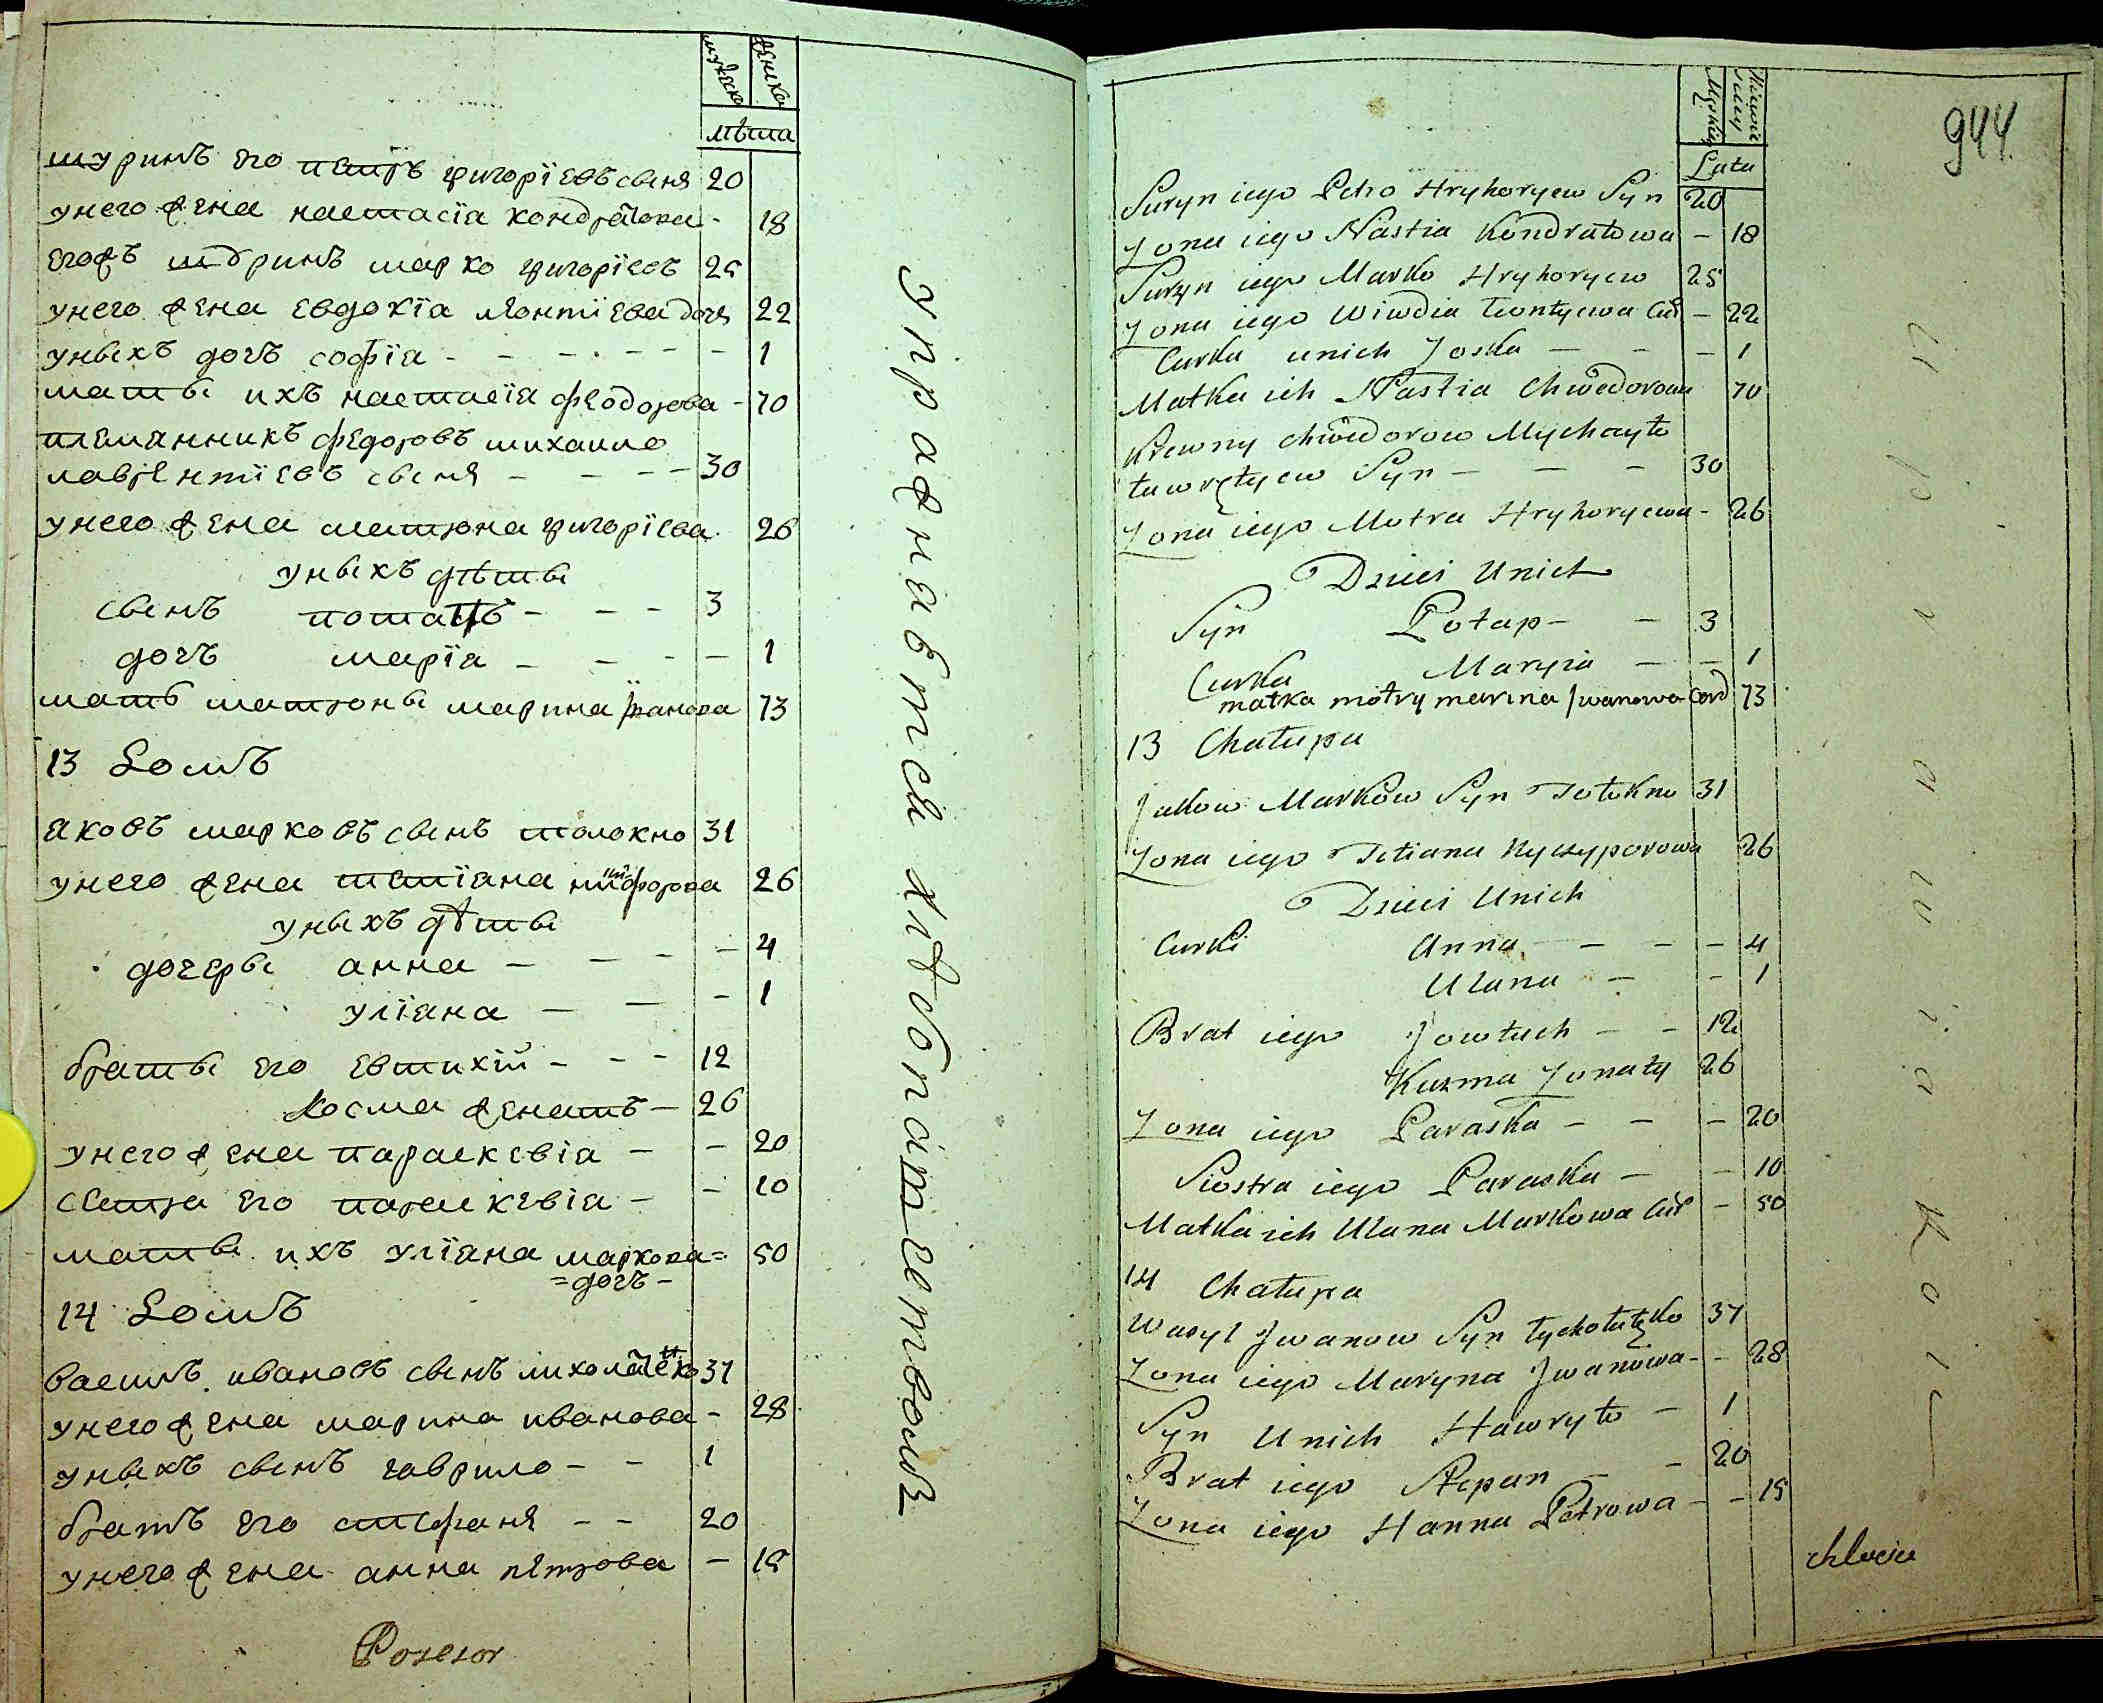 мужеска
женска
лѣта
шуринъ его петръ григорїевъ сынъ 20
унего жена настасїа кондратова - 18
егожъ шуринъ марко григорїевъ 25
унего жена евдокїа леонтїева дочь 22
уныхъ дочъ софїа - - - - - - 1
маты ихъ настасїа феодорова - 70
племянникъ федоровъ михаило
лаврентїевъ сынъ - - - - 30
унего жена матрона григорїева 26
уныхъ дѣты
сынъ потапъ - - - 3
дочъ марїа - - - - 1
мать матроны марина іванова 73
13 Домъ
яковъ марковъ сынъ толокно 31
унего жена татїана никифорова 26
уныхъ дѣты
дочеры анна - - - - - 4
улїана - - - 1
браты его евтихїй - - - 12
косма женатъ - 26
унего жена параскевїа - - 20
сестра его параскевїа - - 10
маты ихъ улїана маркова = 50
= дочъ -
14 Домъ
василь ивановъ сынъ лихолатенко 37
унего жена марина иванова - 28
уныхъ сынъ гаврило - - 1
братъ его стефанъ - - 20
унего жена анна петрова - 15
Posesor
управнавтся хлѣбопаштвомъ
944.
Męska
Lata
Suryn iego Petro Hryhoryew Syn 20
Zona iego Nastia Kondratowa - 18
Suryn iego Marko Hryhoryew 25
Zona iego Wiwdia Leontyewa Cur - 22
Curka unich Zoska - - - 1
Matka ich Nastia Chwedorowa 70
Krewny Chwedorow Mychayło
Ławrętyew Syn - - - 30
Zona iego Motra Hryhoryewa - 26
Dzieci Unich
Syn Potap - - 3
Curka Maryia - - 1
matka motry marina Iwanowa 73
13 Chałupa
Jakow Markow Syn Tołokno 31
Zona iego Tetiana Nyczyporowa 26
Dzieci Unich
Curki Anna - - - - 4
Ulana - - 1
Brat iego Jowtuch - - 12
Kuzma Zonaty 26
Zona iego Paraska - - - 20
Siostra iego Paraska - - 10
Matka ich Ulana Markowa Cur - 50
14 Chałupa
Wasyl Iwanow Syn Łychołatęko 37
Zona iego Maryna Iwanowa - - 28
Syn Unich Hawryło - 1
Brat iego Stepan - - 20
Zona iego Hanna Petrowa - - 15